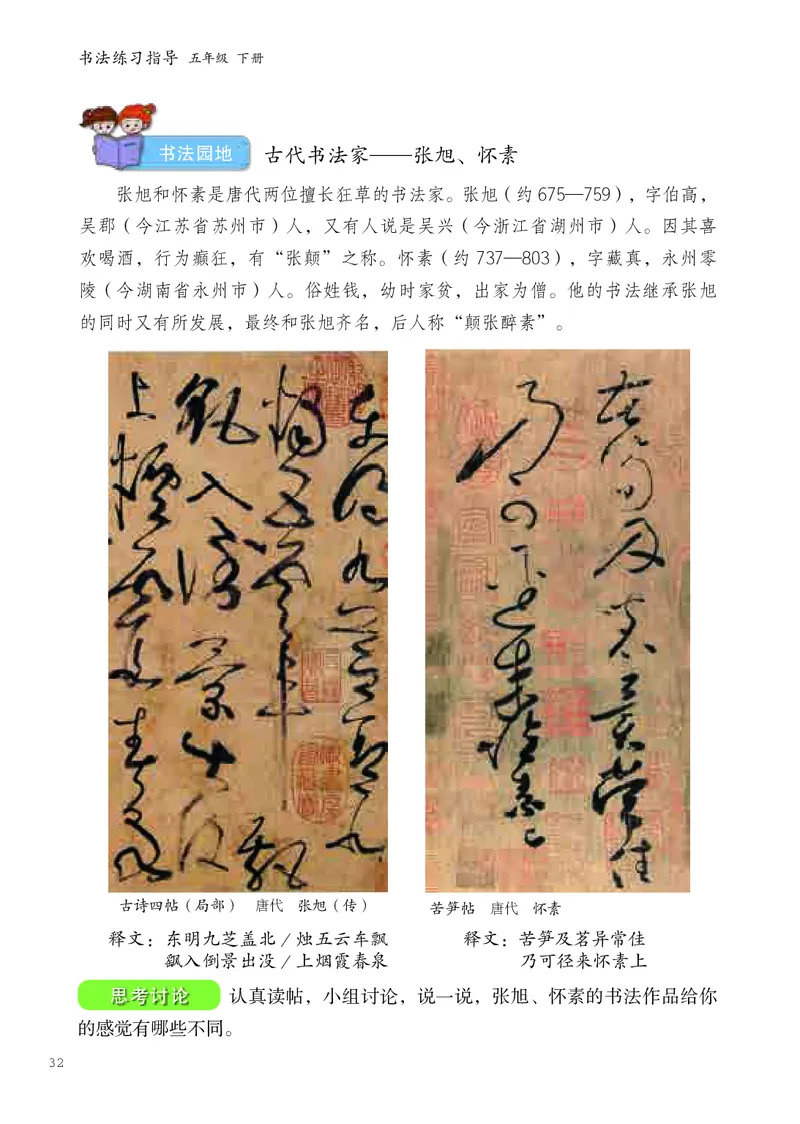 书法练习指导 五年级 下册
书法园地
古代书法家——张旭、怀素
张旭和怀素是唐代两位擅长狂草的书法家。张旭（约 675—759），字伯高，
吴郡（今江苏省苏州市）人，又有人说是吴兴（今浙江省湖州市）人。因其喜
欢喝酒，行为癫狂，有“张颠”之称。怀素（约 737—803），字藏真，永州零
陵（今湖南省永州市）人。俗姓钱，幼时家贫，出家为僧。他的书法继承张旭
的同时又有所发展，最终和张旭齐名，后人称“颠张醉素”。
古诗四帖（局部） 唐代 张旭（传）
释文：东明九芝盖北 / 烛五云车飘
飙入倒景出没 / 上烟霞春泉
苦笋帖 唐代 怀素
释文：苦笋及茗异常住
乃可径来怀素上
思考讨论 认真读帖，小组讨论，说一说，张旭、怀素的书法作品给你
的感觉有哪些不同。
32